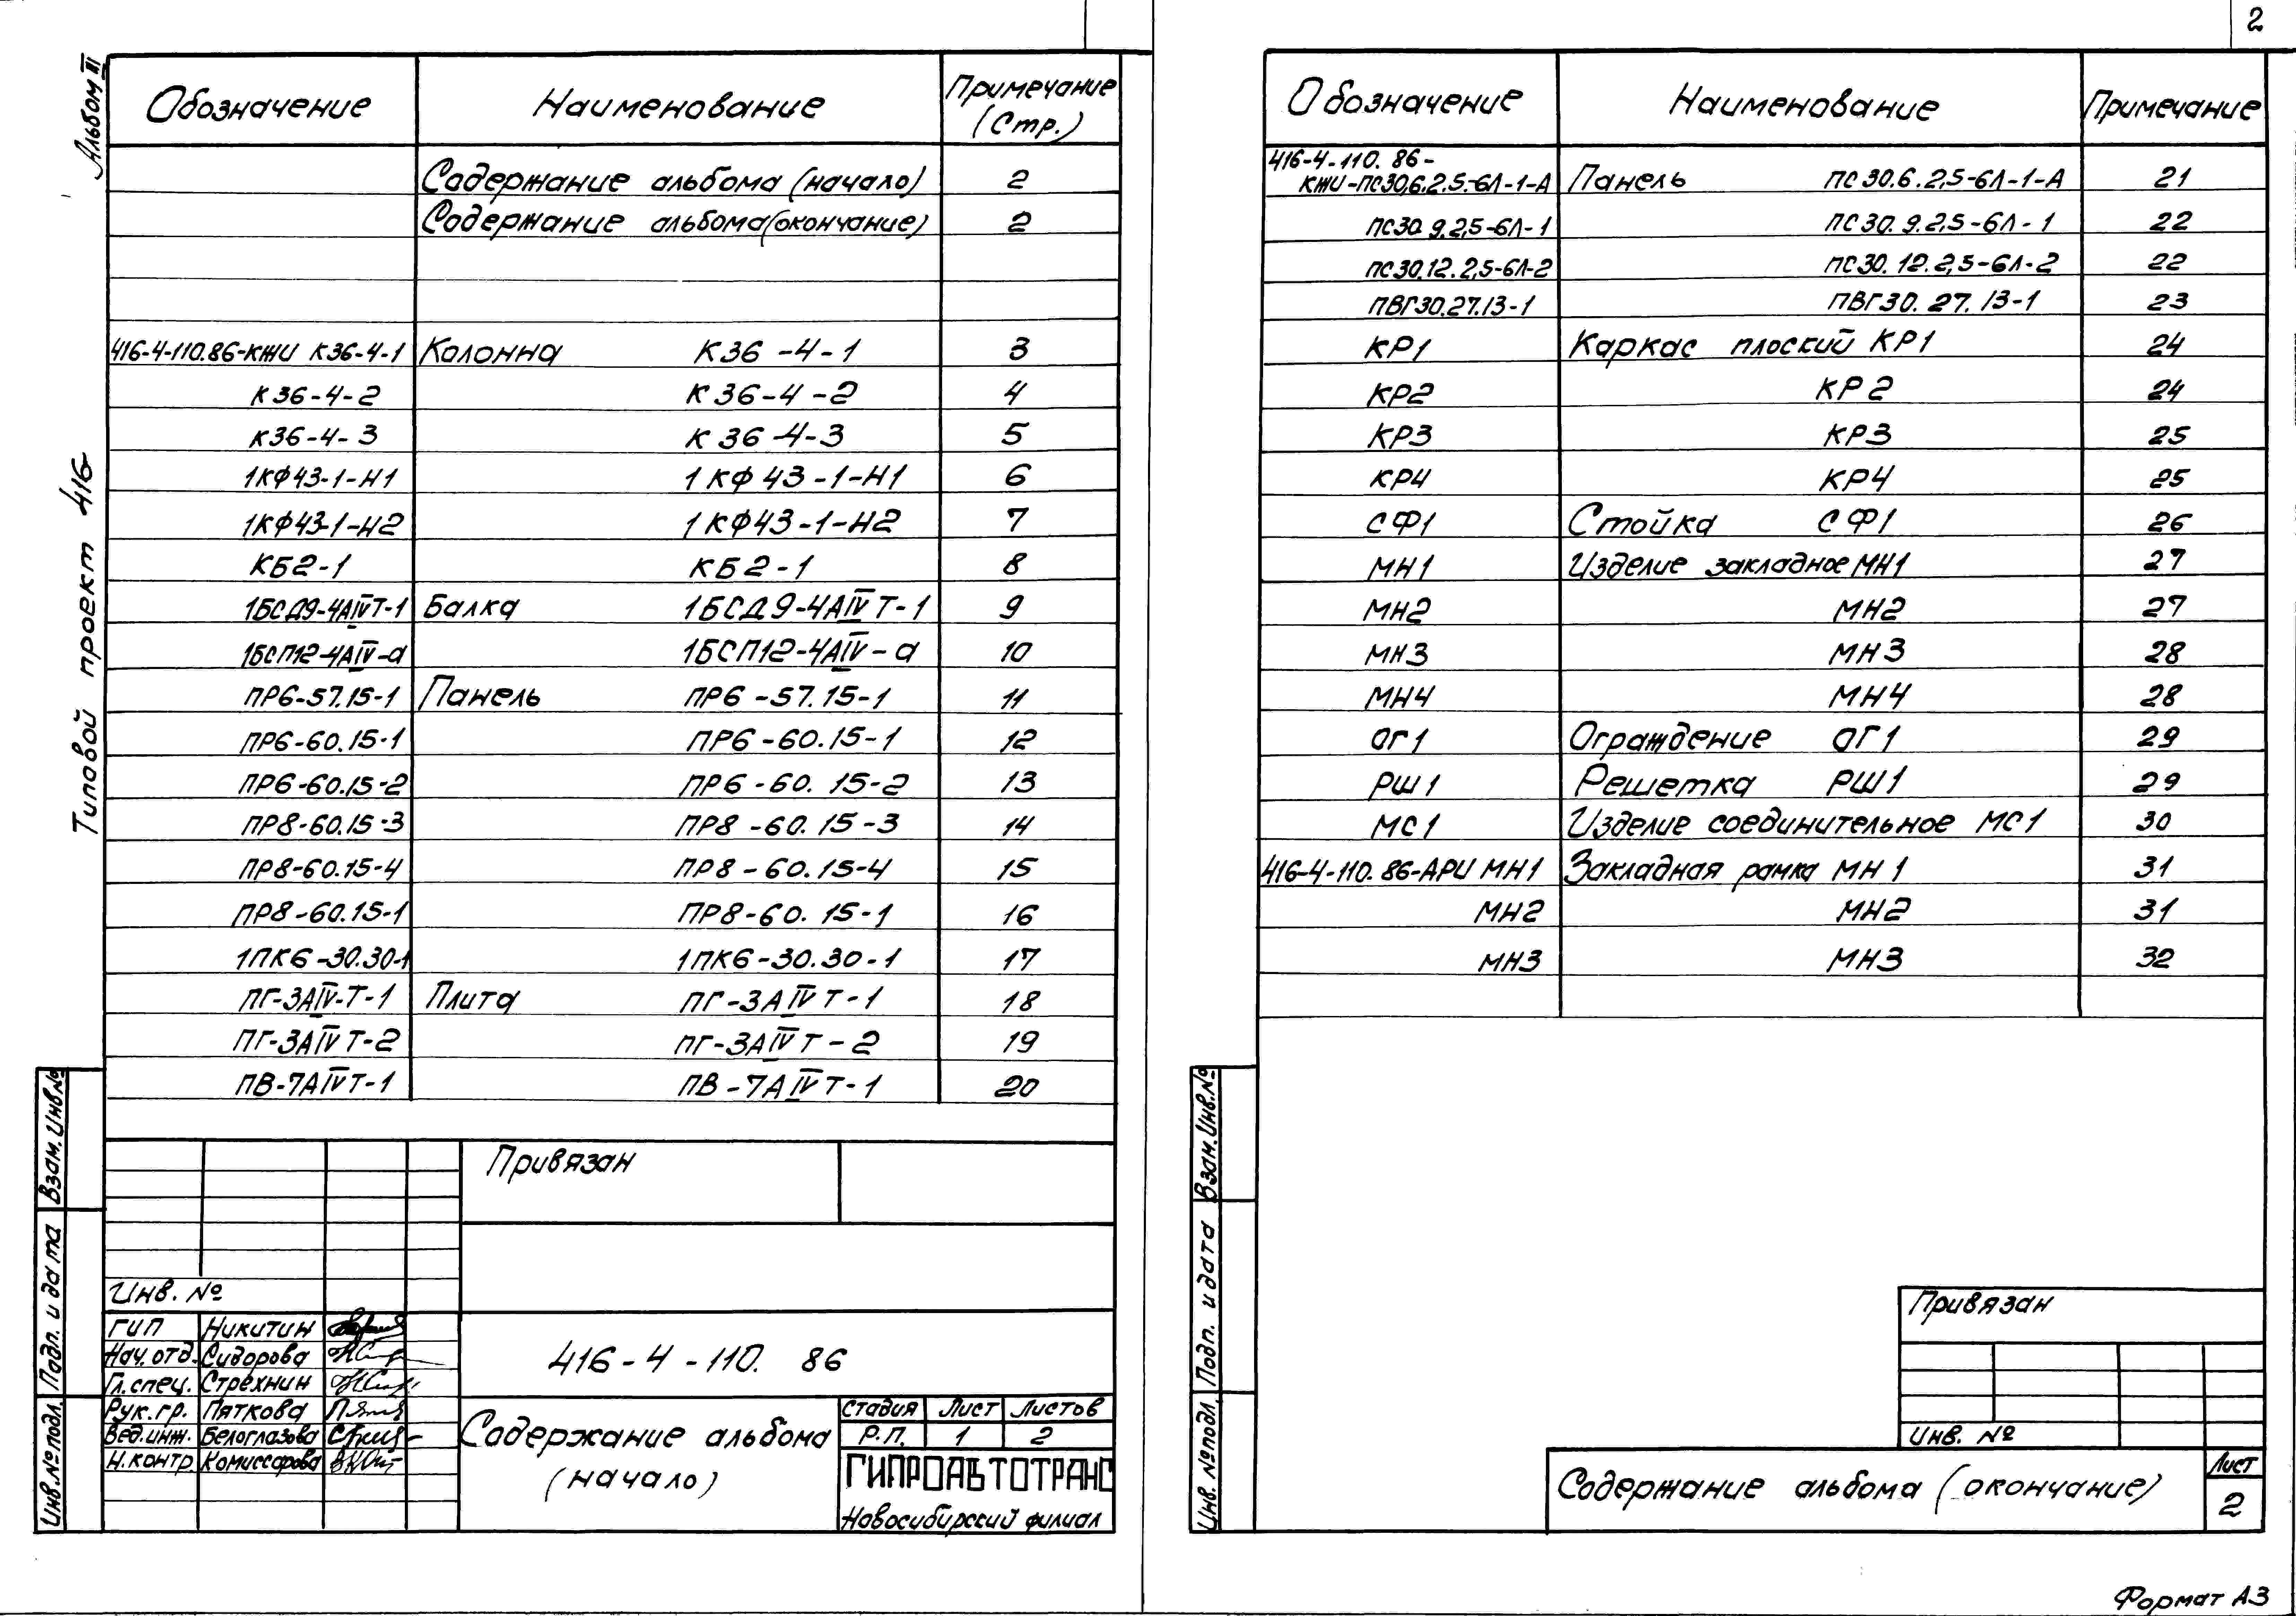 2
Альбом III
Типовой проект 416
Обозначение Наименование Примечание (Стр.)
Содержание альбома (начало) 2
Содержание альбома (окончание) 2
416-4-110.86-КЖИ К36-4-1 Колонна К36-4-1 3
К36-4-2 К36-4-2 4
К36-4-3 К36-4-3 5
1КФ43-1-Н1 1КФ43-1-Н1 6
1КФ43-1-Н2 1КФ43-1-Н2 7
КБ2-1 КБ2-1 8
1БСД9-4АIVТ-1 Балка 1БСД9-4АIVТ-1 9
1БСП12-4АIV-а 1БСП12-4АIV-а 10
ПР6-57.15-1 Панель ПР6-57.15-1 11
ПР6-60.15-1 ПР6-60.15-1 12
ПР6-60.15-2 ПР6-60.15-2 13
ПР8-60.15-3 ПР8-60.15-3 14
ПР8-60.15-4 ПР8-60.15-4 15
ПР8-60.15-1 ПР8-60.15-1 16
1ПК6-30.30-1 1ПК6-30.30-1 17
ПГ-3АIV-Т-1 Плита ПГ-3АIVТ-1 18
ПГ-3АIVТ-2 ПГ-3АIVТ-2 19
ПВ-7АIVТ-1 ПВ-7АIVТ-1 20
Привязан
Инв. №
ГИП Никитин
Нач. отд. Сидорова
Гл. спец. Стрехнин
Рук. гр. Пяткова
Вед. инж. Белоглазова
Н. контр. Комиссарова
416-4-110. 86
Содержание альбома
(начало)
Стадия Лист Листов
Р.П. 1 2
ГИПРОАВТОТРАНС
Новосибирский филиал
Взам. Инв. №
Подп. и дата
Инв. № подл.
Обозначение Наименование Примечание
416-4-110. 86-
КЖИ-ПС30.6.2.5-6Л-1-А Панель ПС30.6.2,5-6Л-1-А 21
ПС30.9.2,5-6Л-1 ПС30.9.2,5-6Л-1 22
ПС30.12.2,5-6Л-2 ПС30.12.2,5-6Л-2 22
ПВГ30.27.13-1 ПВГ30.27.13-1 23
КР1 Каркас плоский КР1 24
КР2 КР2 24
КР3 КР3 25
КР4 КР4 25
СФ1 Стойка СФ1 26
МН1 Изделие закладное МН1 27
МН2 МН2 27
МН3 МН3 28
МН4 МН4 28
ОГ1 Ограждение ОГ1 29
РШ1 Решетка РШ1 29
МС1 Изделие соединительное МС1 30
416-4-110.86-АРИ МН1 Закладная рамка МН1 31
МН2 МН2 31
МН3 МН3 32
Взам. Инв. №
Подп. и дата
Инв. № подл.
Привязан
Инв. №
Содержание альбома (окончание)
Лист
2
Формат А3